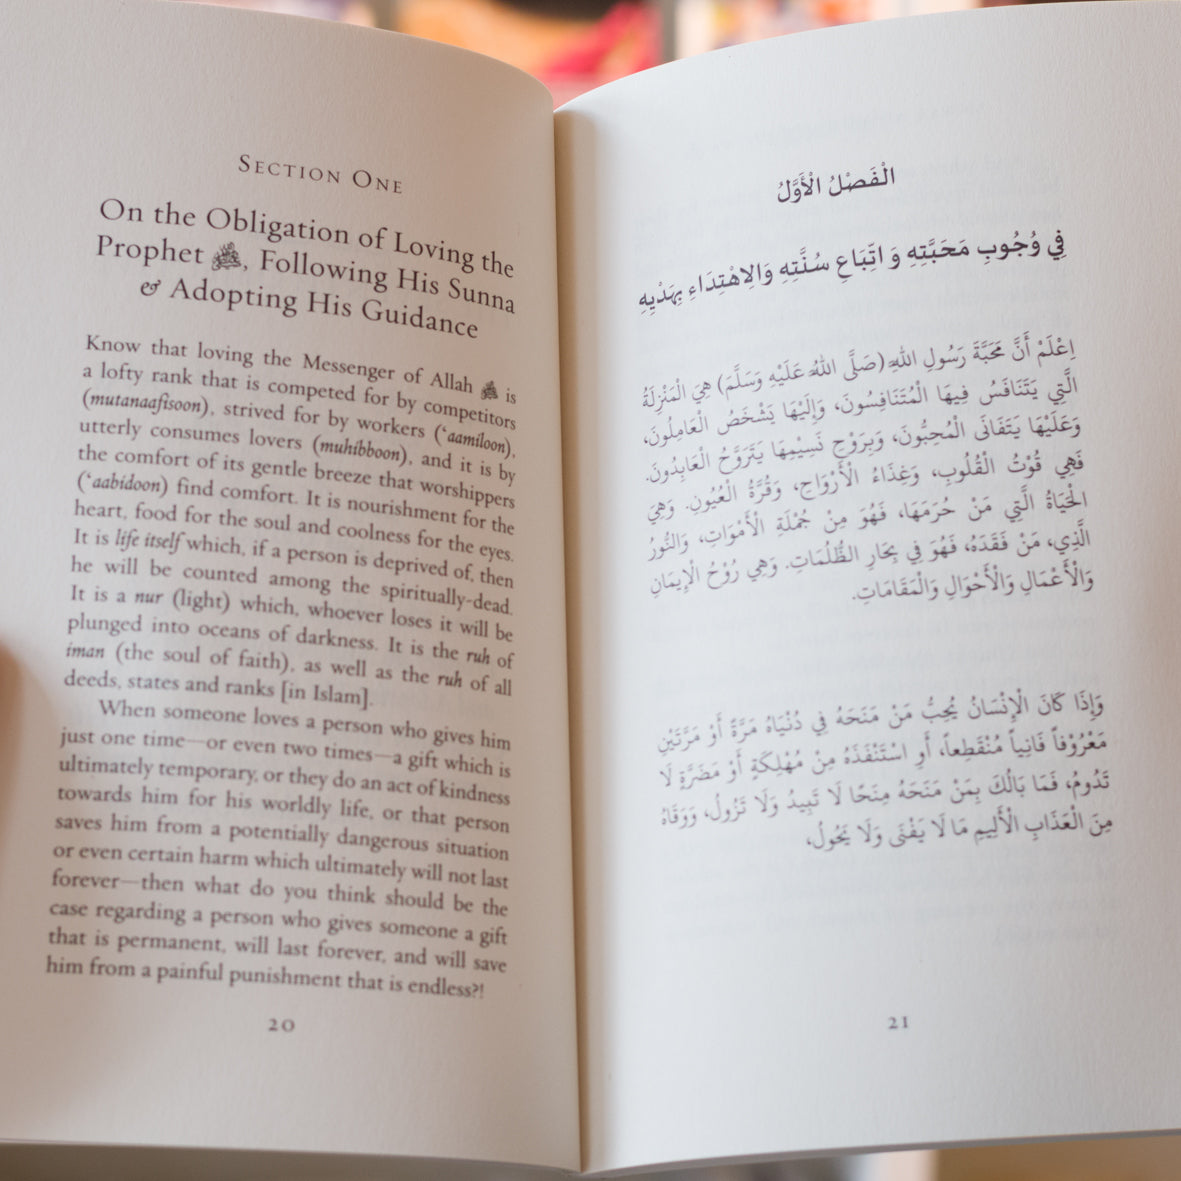 SECTION ONE
On the Obligation of Loving the
Prophet ﷺ, Following His Sunna
& Adopting His Guidance
Know that loving the Messenger of Allah ﷺ is
a lofty rank that is competed for by competitors
(mutanaafisoon), strived for by workers (‘aamiloon),
utterly consumes lovers (muhibboon), and it is by
the comfort of its gentle breeze that worshippers
(‘aabidoon) find comfort. It is nourishment for the
heart, food for the soul and coolness for the eyes.
It is life itself which, if a person is deprived of, then
he will be counted among the spiritually-dead.
It is a nur (light) which, whoever loses it will be
plunged into oceans of darkness. It is the ruh of
iman (the soul of faith), as well as the ruh of all
deeds, states and ranks [in Islam].
When someone loves a person who gives him
just one time—or even two times—a gift which is
ultimately temporary, or they do an act of kindness
towards him for his worldly life, or that person
saves him from a potentially dangerous situation
or even certain harm which ultimately will not last
forever—then what do you think should be the
case regarding a person who gives someone a gift
that is permanent, will last forever, and will save
him from a painful punishment that is endless?!
20
الْفَصْلُ الْأَوَّلُ
فِي وُجُوبِ مَحَبَّتِهِ وَ اتِّبَاعِ سُنَّتِهِ وَالِاهْتِدَاءِ بِهَدْيِهِ
اِعْلَمْ أَنَّ مَحَبَّةَ رَسُولِ اللهِ (صَلَّى اللهُ عَلَيْهِ وَسَلَّمَ) هِيَ الْمَنْزِلَةُ
الَّتِي يَتَنَافَسُ فِيهَا الْمُتَنَافِسُونَ، وَإِلَيْهَا يَشْخَصُ الْعَامِلُونَ،
وَعَلَيْهَا يَتَفَانَى الْمُحِبُّونَ، وَبِرَوْحِ نَسِيْمِهَا يَتَرَوَّحُ الْعَابِدُونَ.
فَهِي قُوْتُ الْقُلُوبِ، وَغِذَاءُ الْأَرْوَاحِ، وَقُرَّةُ الْعُيُونِ. وَهِيَ
الْحَيَاةُ الَّتِي مَنْ حُرِمَهَا، فَهُوَ مِنْ جُمْلَةِ الْأَمْوَاتِ، وَالنُّورُ
الَّذِي، مَنْ فَقَدَهُ، فَهُوَ فِي بِحَارِ الظُّلُمَاتِ. وَهِي رُوْحُ الْإِيمَانِ
وَالْأَعْمَالِ وَالْأَحْوَالِ وَالْمَقَامَاتِ.
وَإِذَا كَانَ الْإِنْسَانُ يُحِبُّ مَنْ مَنَحَهُ فِي دُنْيَاهُ مَرَّةً أَوْ مَرَّتَيْنِ
مَعْرُوْفاً فَانِياً مُنْقَطِعاً، أَوِ اسْتَنْقَذَهُ مِنْ مُهْلِكَةٍ أَوْ مَضَرَّةٍ لَا
تَدُومُ، فَمَا بَالُكَ بِمَنْ مَنَحَهُ مِنَحًا لَا تَبِيدُ وَلَا تَزُولُ، وَوَقَاهُ
مِنَ الْعَذَابِ الْأَلِيمِ مَا لَا يَفْنَى وَلَا يَحُولُ،
21